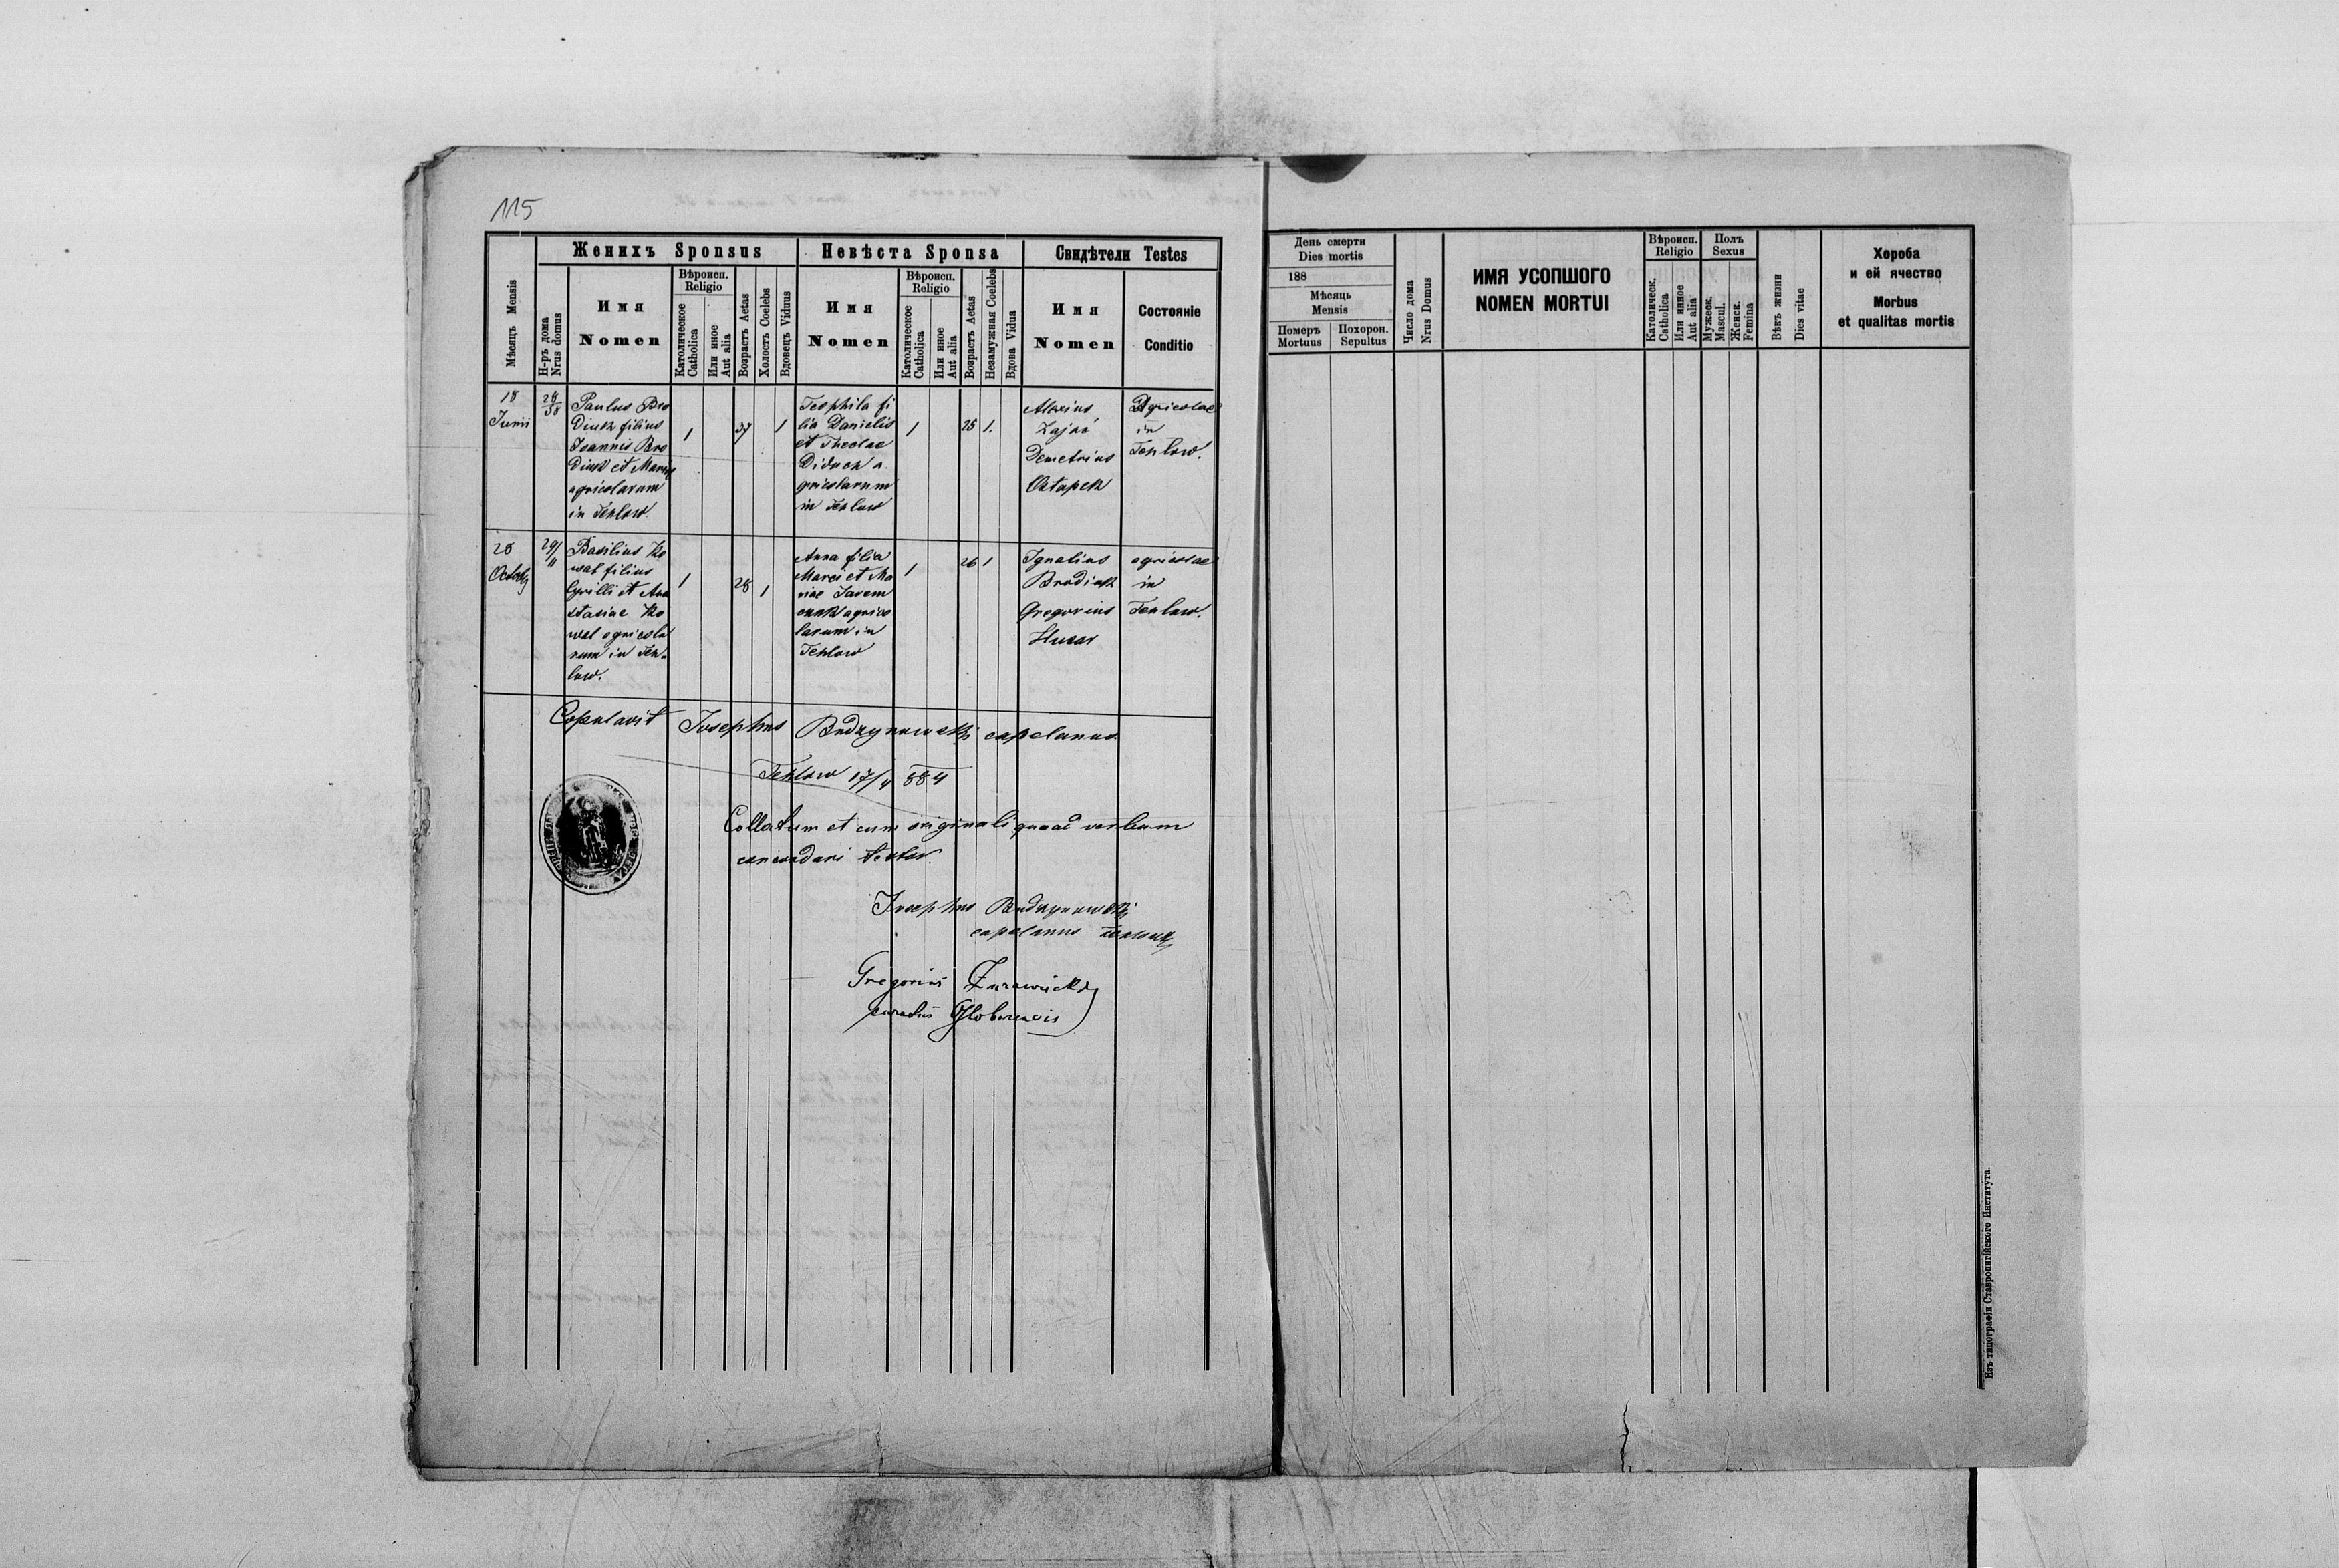 115
Женихъ Sponsus
Невѣста Sponsa
Свидѣтели Testes
Мѣсяцъ Mensis
Н-ръ дома
Nrus domus
Имя
Nomen
Вѣроисп.
Religio
Католическое
Catholica
Или иное
Aut alia
Возрастъ Aetas
Холостъ Coelebs
Вдовецъ Viduus
Имя
Nomen
Вѣроисп.
Religio
Католическое
Catholica
Или иное
Aut alia
Возрастъ Aetas
Незамужная Coelebs
Вдова Vidua
Имя
Nomen
Состоянiе
Conditio
18
Junii
Paulus Bro
diuk filius
Joannis Bro
diuk et Mariae
agricolarum
in Tehlow.
1
37
1
Teophila fi
lia Danielis
et Theclae
Diduch a
gricolarum
in Tehlow
1
25
1.
Alexius
Zając
Demetrius
Ostapek
Agricolae
in
Tehlow.
28
29/11
Basilius Ko
wal filius
Cyrilli et Ana
stasiae Ko
wal agricola
rum in Teh-
low.
1
28
1
Anna filia
Marci et Ma
riae Jarem
czuk agrico
larum in
Tehlow
1
26
1
Ignatius
Brodiuk
Gregorius
Huzar
agricolae
in
Tehlow.
Copulavit Josephus Budzynowski capelanus
Tehlow 17/4 884
Collatum et cum originali quoad verbum
concordans testor.
Josephus Budzynowski
capelanus
Gregorius Zurawiecki
curatus
День смерти
Dies mortis
188
Мѣсяць
Mensis
Померъ
Mortuus
Похорон.
Sepultus
Число дома
Nrus Domus
ИМЯ УСОПШОГО
NOMEN MORTUI
Вѣроисп.
Religio
Католическ.
Catholica
Или инное
Aut alia
Полъ
Sexus
Мужеск.
Mascul.
Женск.
Femina
Вѣкъ жизни
Dies vitae
Хороба
и ей ячество
Morbus
et qualitas mortis
Изъ типографiи Ставропигiйского Института.